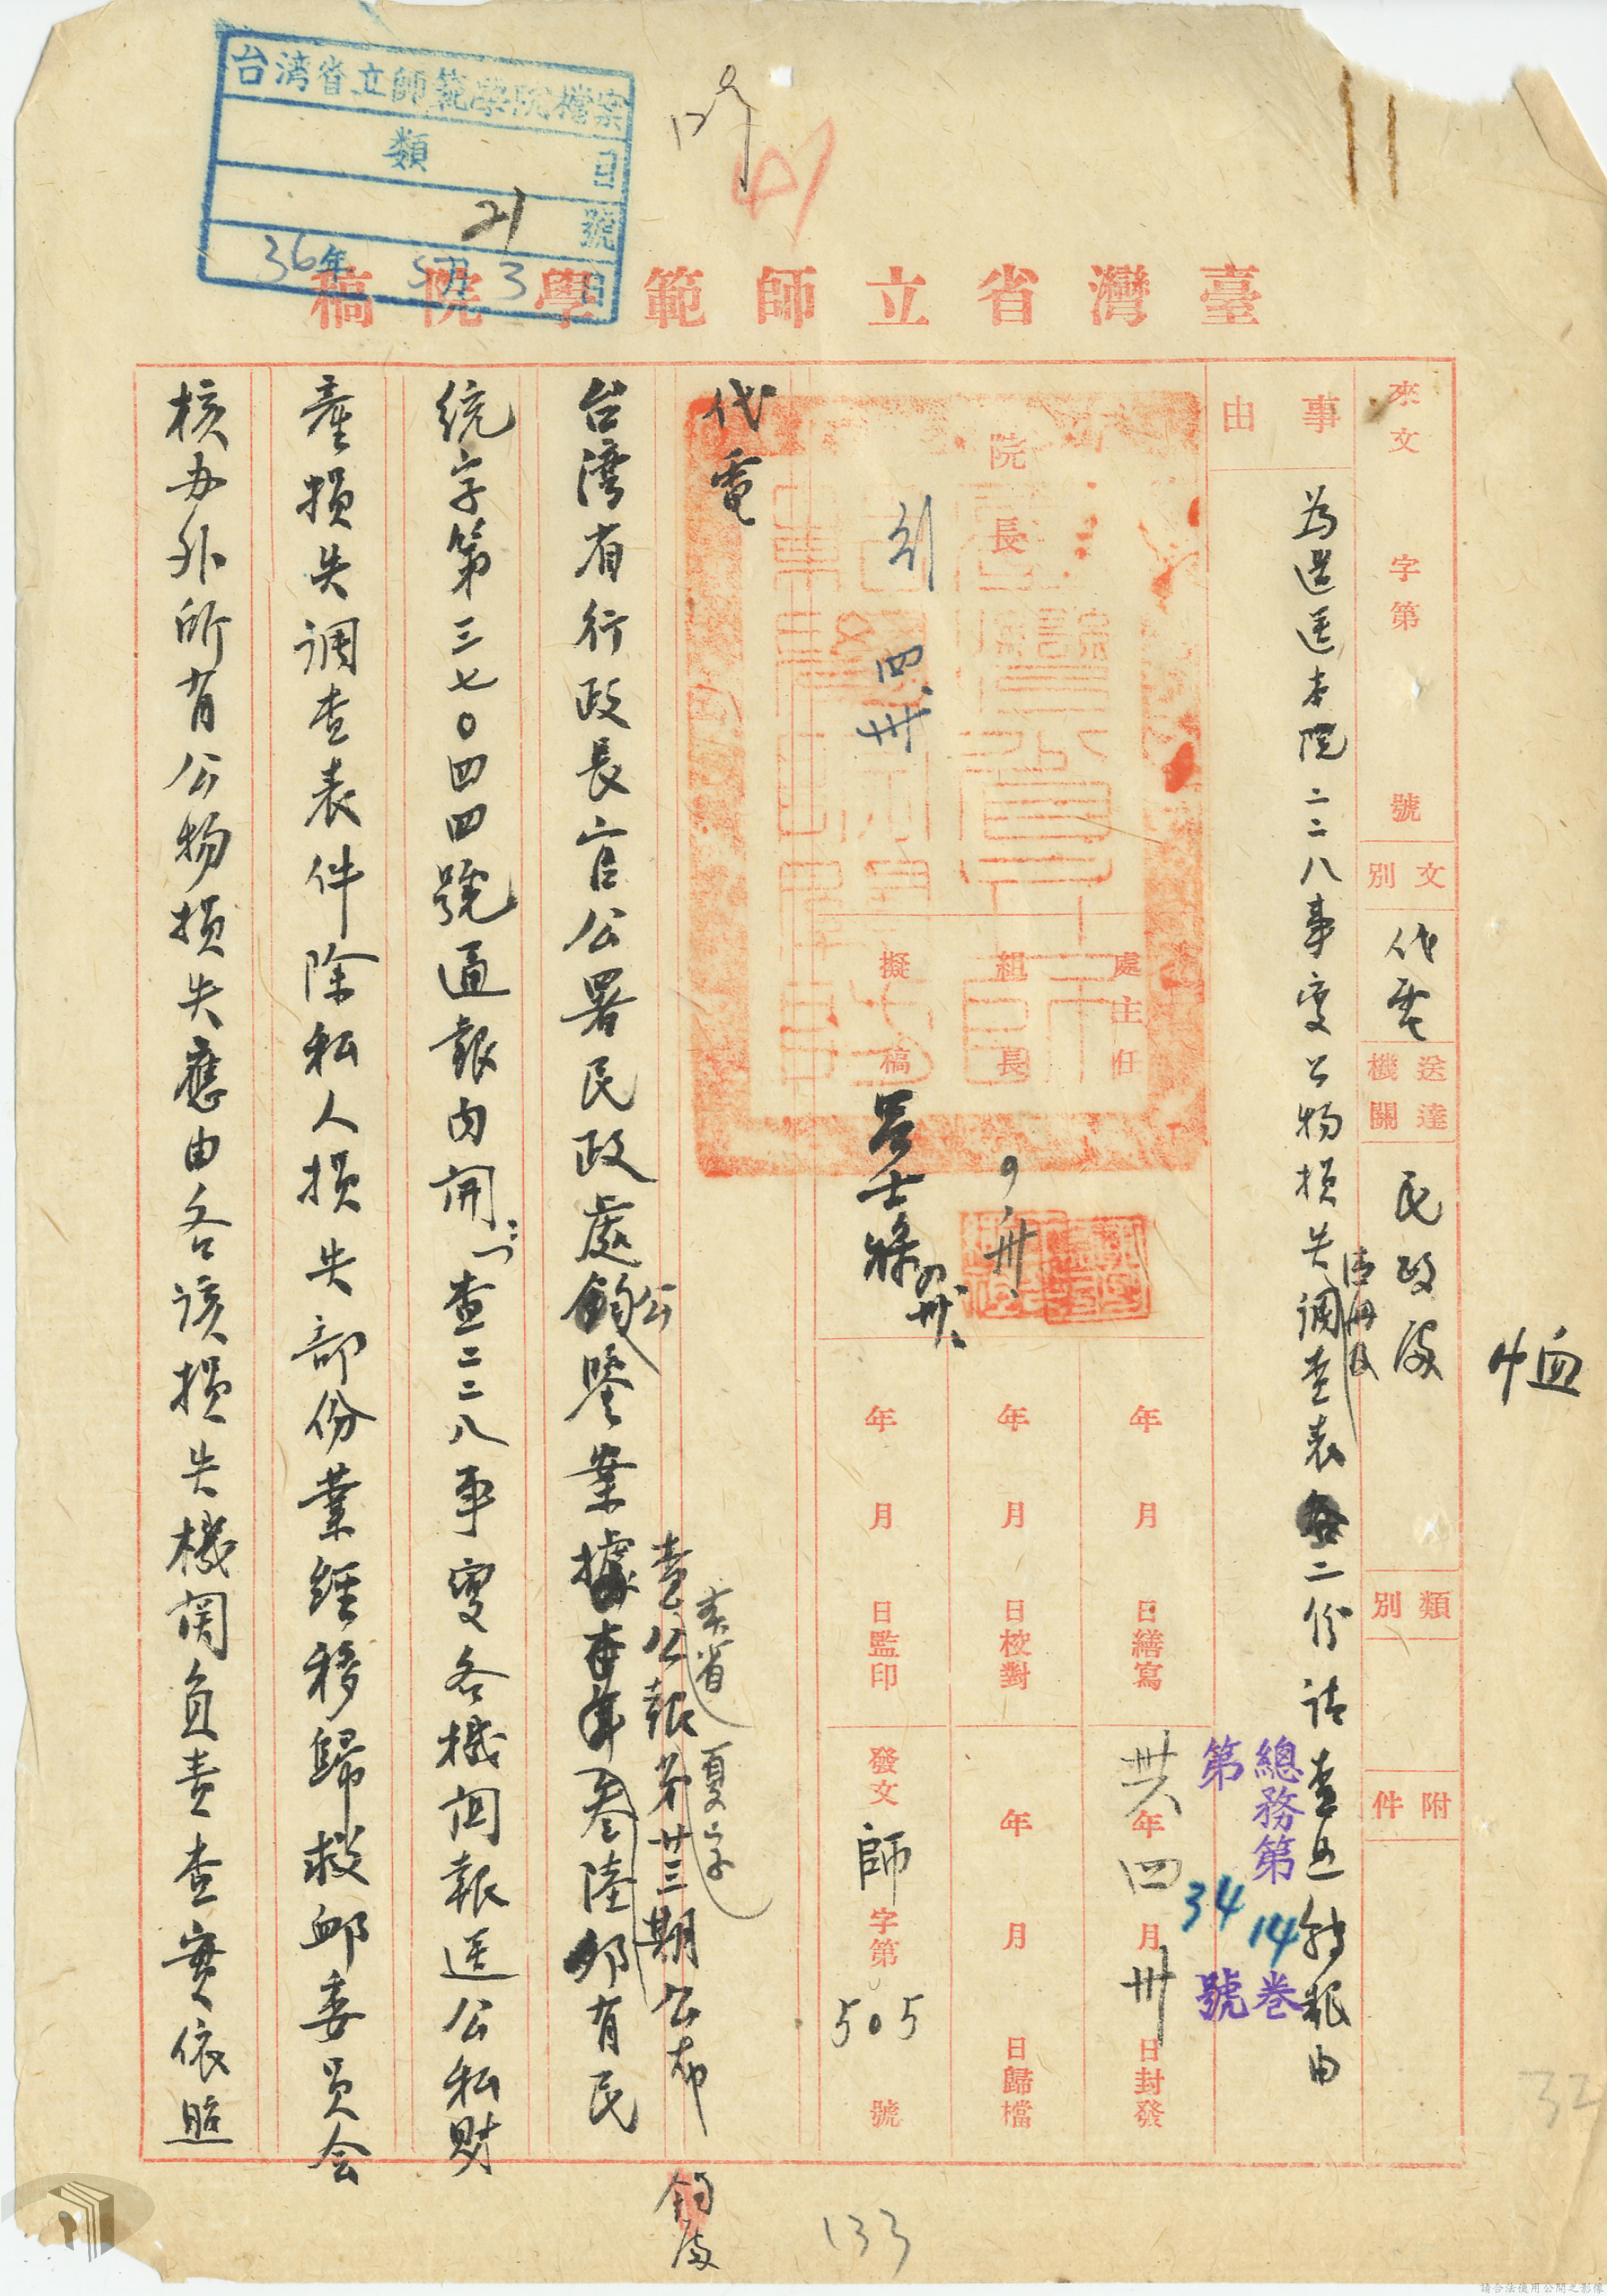 台湾省立師範學院檔案
類 目
21 號
36年 5月 3日
41
臺灣省立師範學院稿
來文 字第 號
文別 代電
送達機關 民政處
類別
附件
事由
為選送本院二二八事變公物損失清冊及調查表二份請查照轉報由
總務第14卷
第34號
恤
院長
四、卅
處主任
組長
擬稿
四、卅、
呂士條 四、卅、
年 月 日繕寫
年 月 日校對
年 月 日監印
卅六年四月卅日封發
年 月 日歸檔
發文師字第505號
代電
台湾省行政長官公署民政處公鑒案據
臺省公報夏字第廿三期公布
鈞處
叁陸卯有民
統字第三七〇四四號通報內開：「查二二八事變各機関報送公私財
產損失调查表件除私人損失部份業經移歸救卹委员会
核办外所有公物損失應由各该損失機関負责查實依照
133
32
請合法使用公開之影像